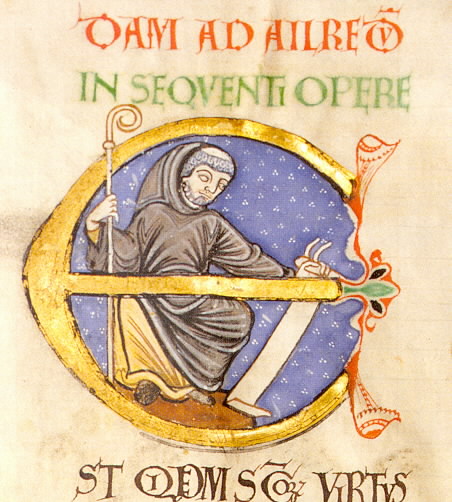 DAM AD AILREDV̄
IN SEQVENTI OPERE
EST QIDEM SC̄OꝜ VIRTVS